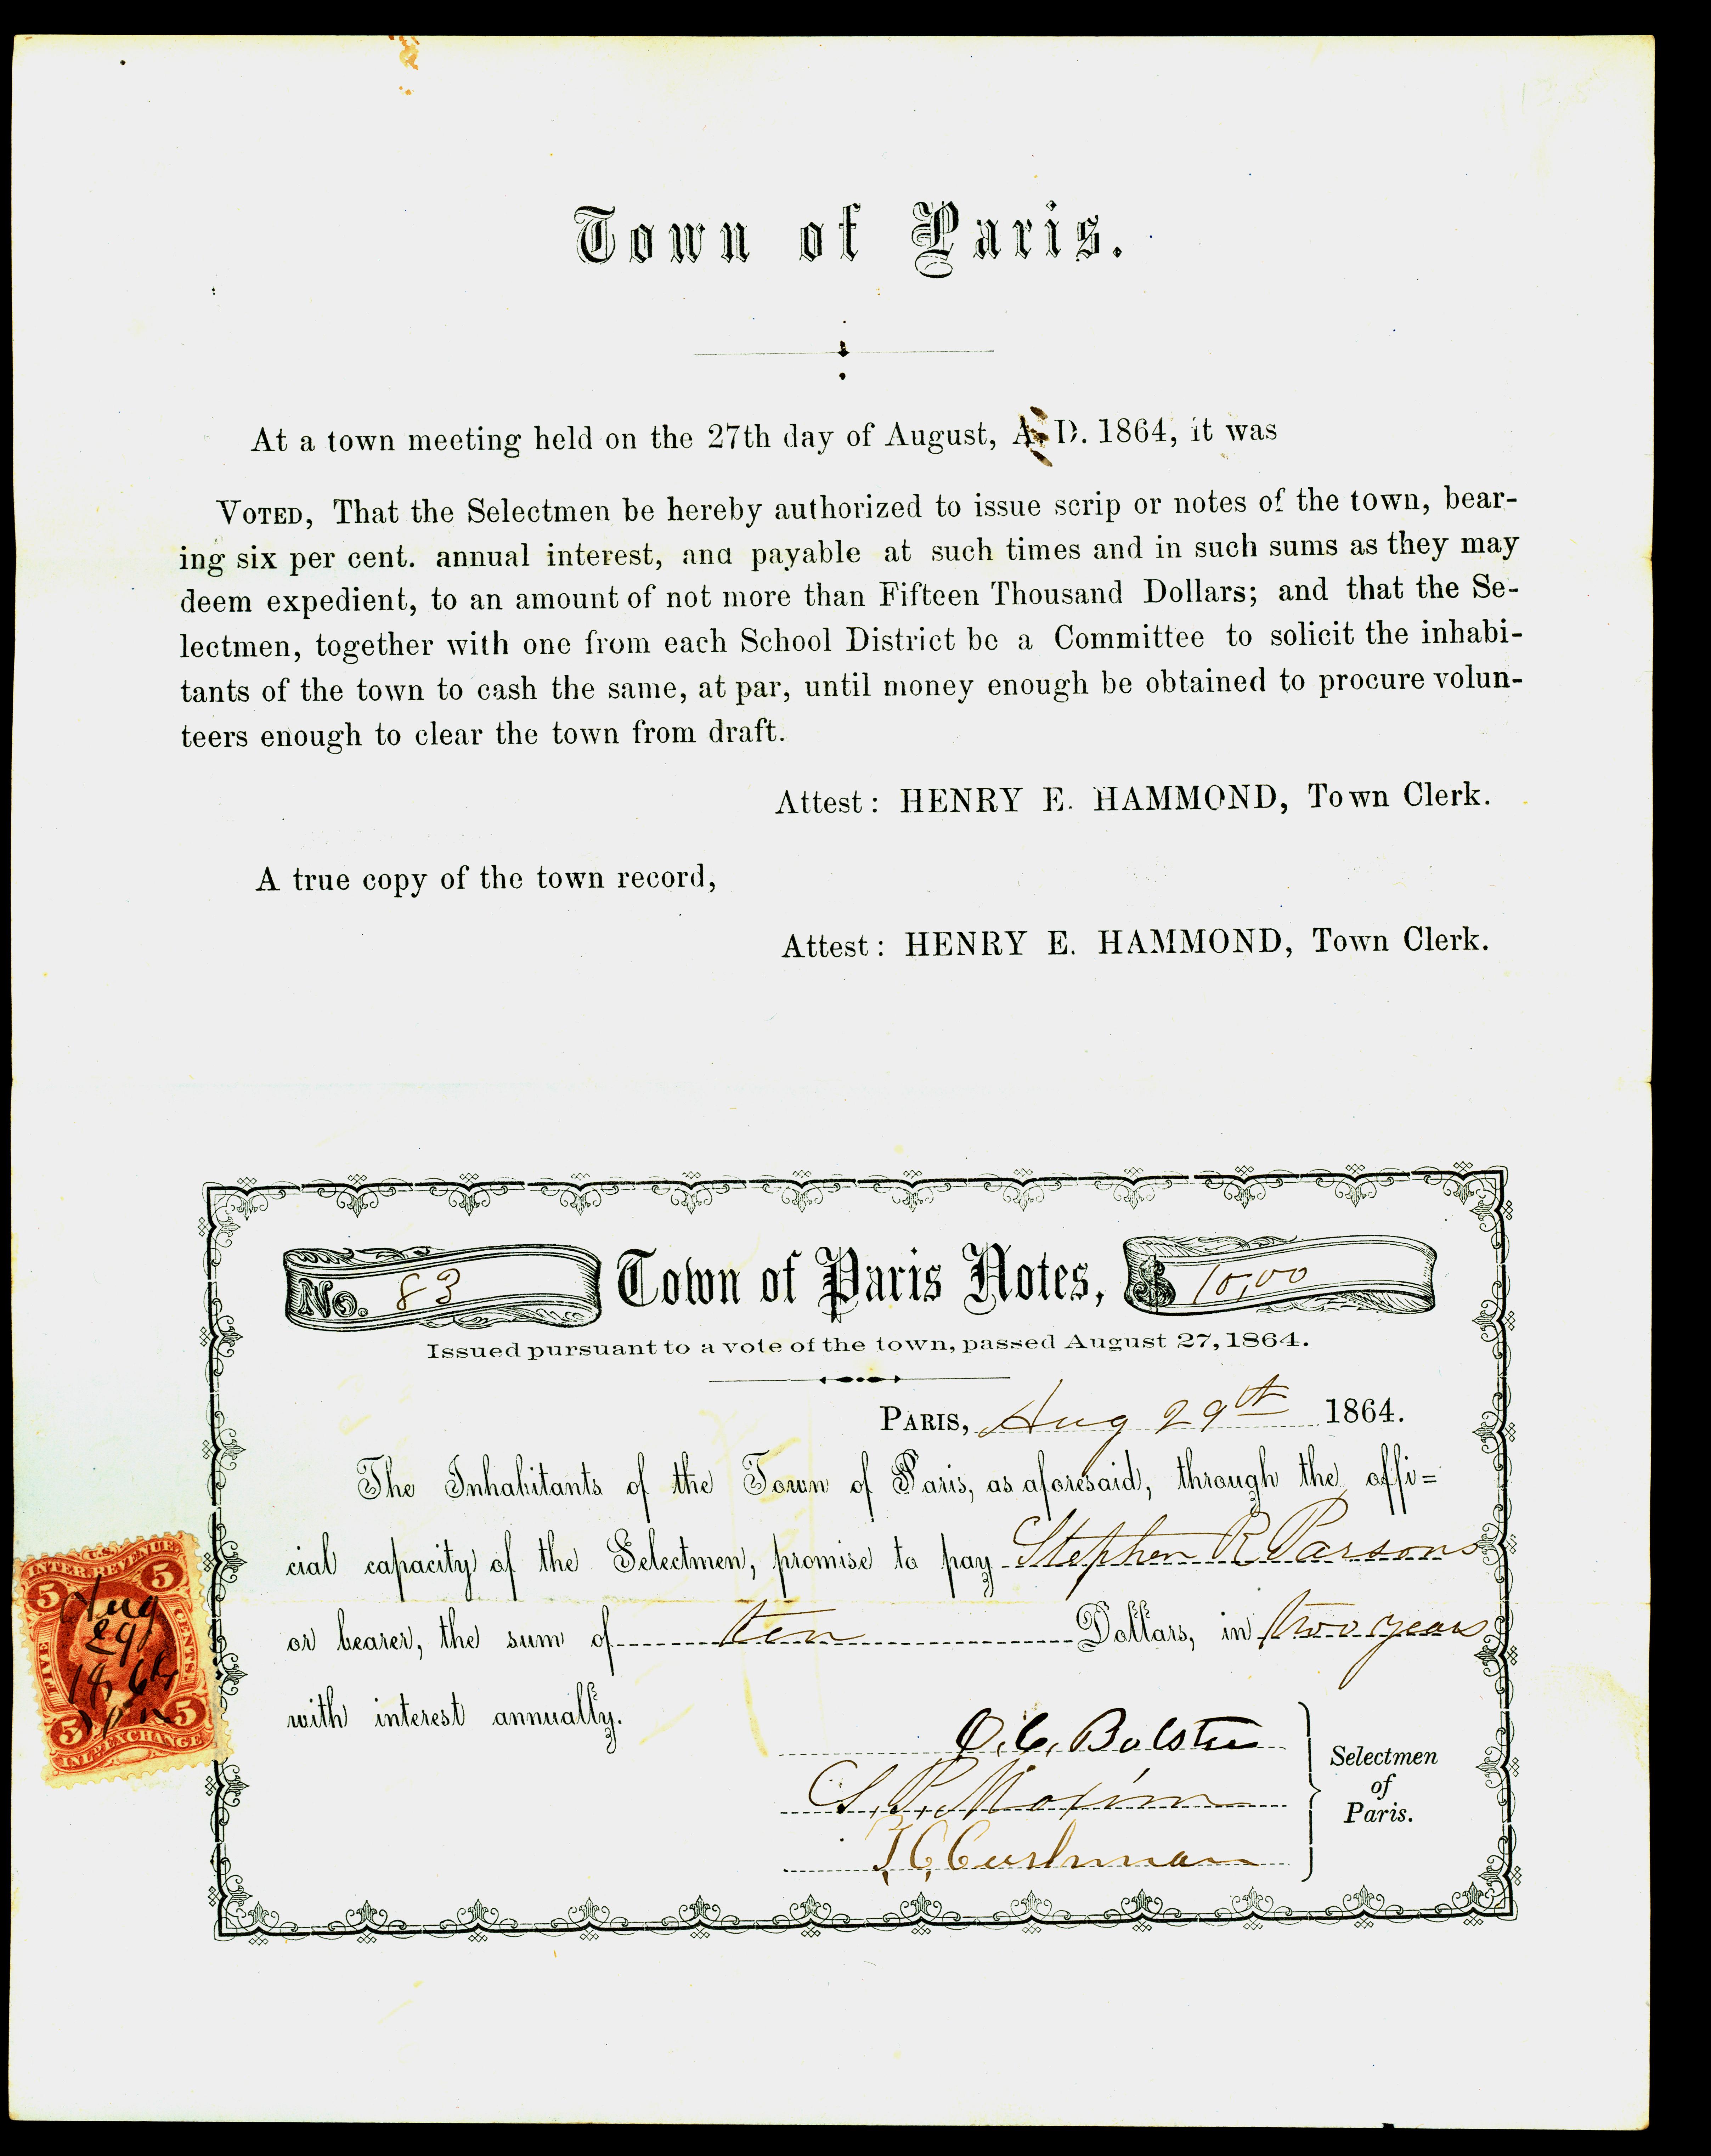 Town of Paris.
At a town meeting held on the 27th day of August, A. D. 1864, it was
VOTED, That the Selectmen be hereby authorized to issue scrip or notes of the town, bear-
ing six per cent. annual interest, and payable at such times and in such sums as they may
deem expedient, to an amount of not more than Fifteen Thousand Dollars; and that the Se-
lectmen, together with one from each School District be a Committee to solicit the inhabi-
tants of the town to cash the same, at par, until money enough be obtained to procure volun-
teers enough to clear the town from draft.
Attest: HENRY E. HAMMOND, Town Clerk.
A true copy of the town record,
Attest: HENRY E. HAMMOND, Town Clerk.
No. 83 Town of Paris Notes, $ 10,00
Issued pursuant to a vote of the town, passed August 27, 1864.
PARIS, Aug 29th 1864.
The Inhabitants of the Town of Paris, as aforesaid, through the offi=
cial capacity of the Selectmen, promise to pay Stephen R Parsons
or bearer, the sum of ten Dollars, in two years
with interest annually.
O. C. Bolster
S. P. Maxim
T. C. Cushman
Selectmen
of
Paris.
U.S.
INTER. REVENUE
5 5
FIVE CENTS.
Aug
29
1864
5 5
INL. EXCHANGE